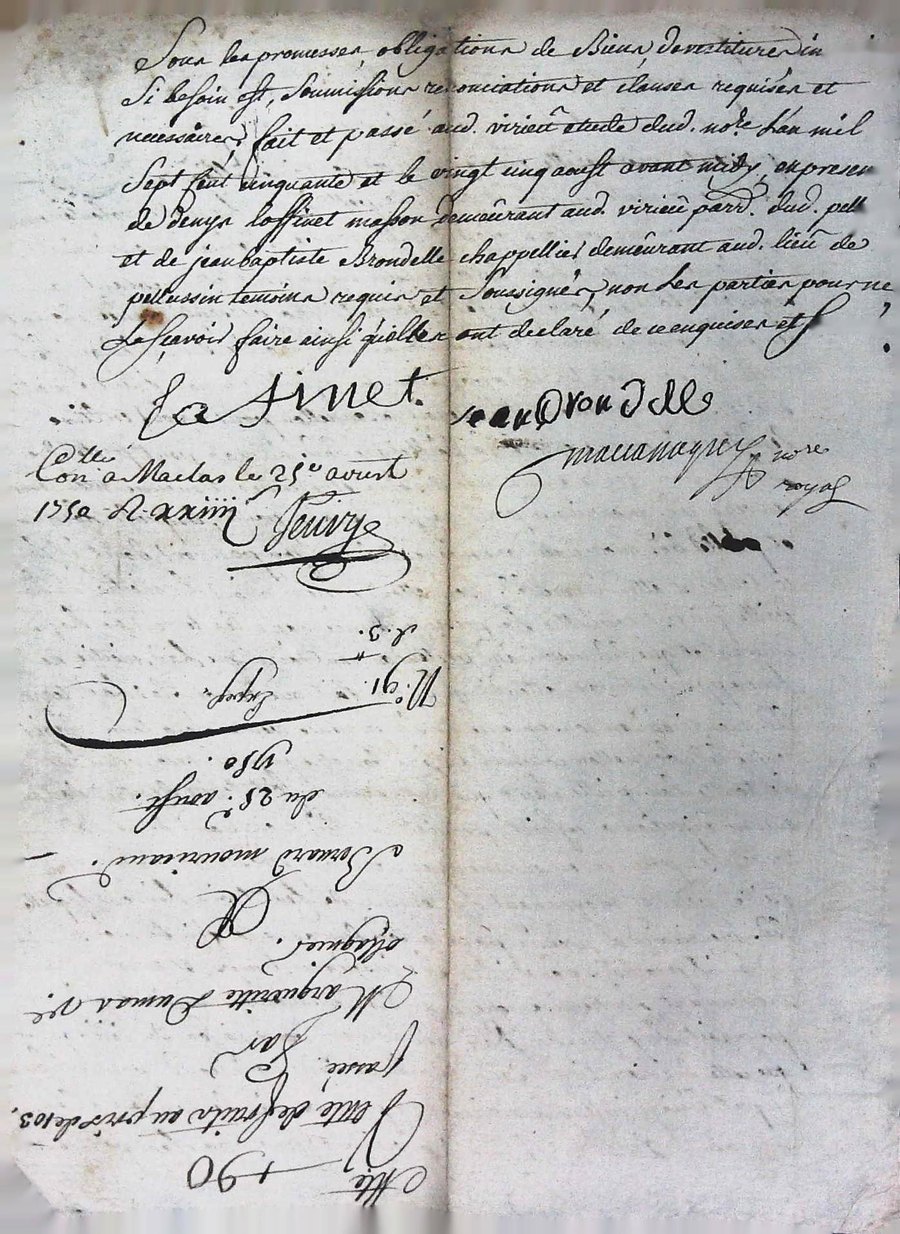 Sous les promesses, obligations de Biens, devestitures in
si besoin est, soumissions renonciations et clauses requises et
necessaires, fait et passé aud. virieu etude dud. no.re L'an mil
sept cent cinquante et le vingt cinq aoust avant midy, en presen
de denys loffinet masson demeurant aud. virieu parr. dud. pell
et de jean baptiste Brondelle chappellier demeurant aud. lieu de
pellussin temoins requis et soussignés, non Les parties pour ne
Le sçavoir faire ainsi qu'elles ont declaré de ce enquises et
la finet.
jean Bron delle
no.re
royal
Con.lle a Maclas le 25e aoust
1750 R. xxiiij s
N.o 91.
Exped.
du 25.e aoust.
1750.
a Bernard mourieaud.
Magnier.
Margueritte Dumas v.e
passée, Par
Vente de fruits au prix de 103.
Cotte 190